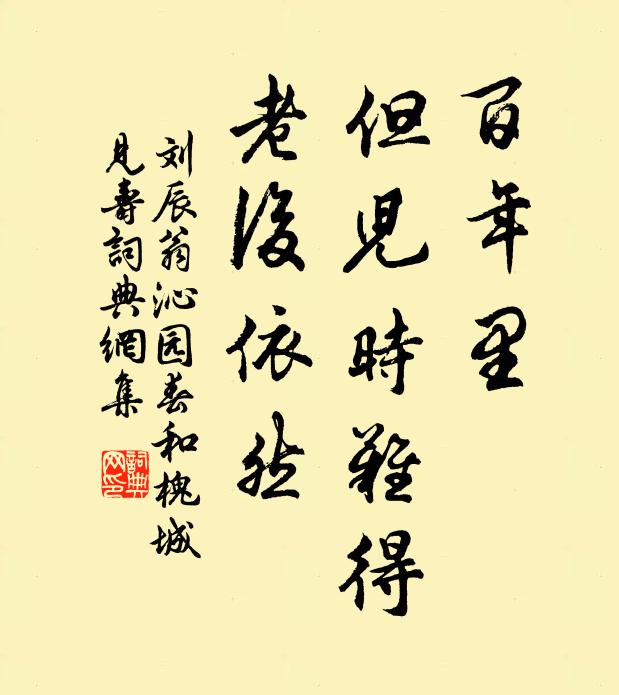 百年里
但児時難得
老後依然
刘辰翁沁园春和槐城
見壽詞典網集
詞典
网印